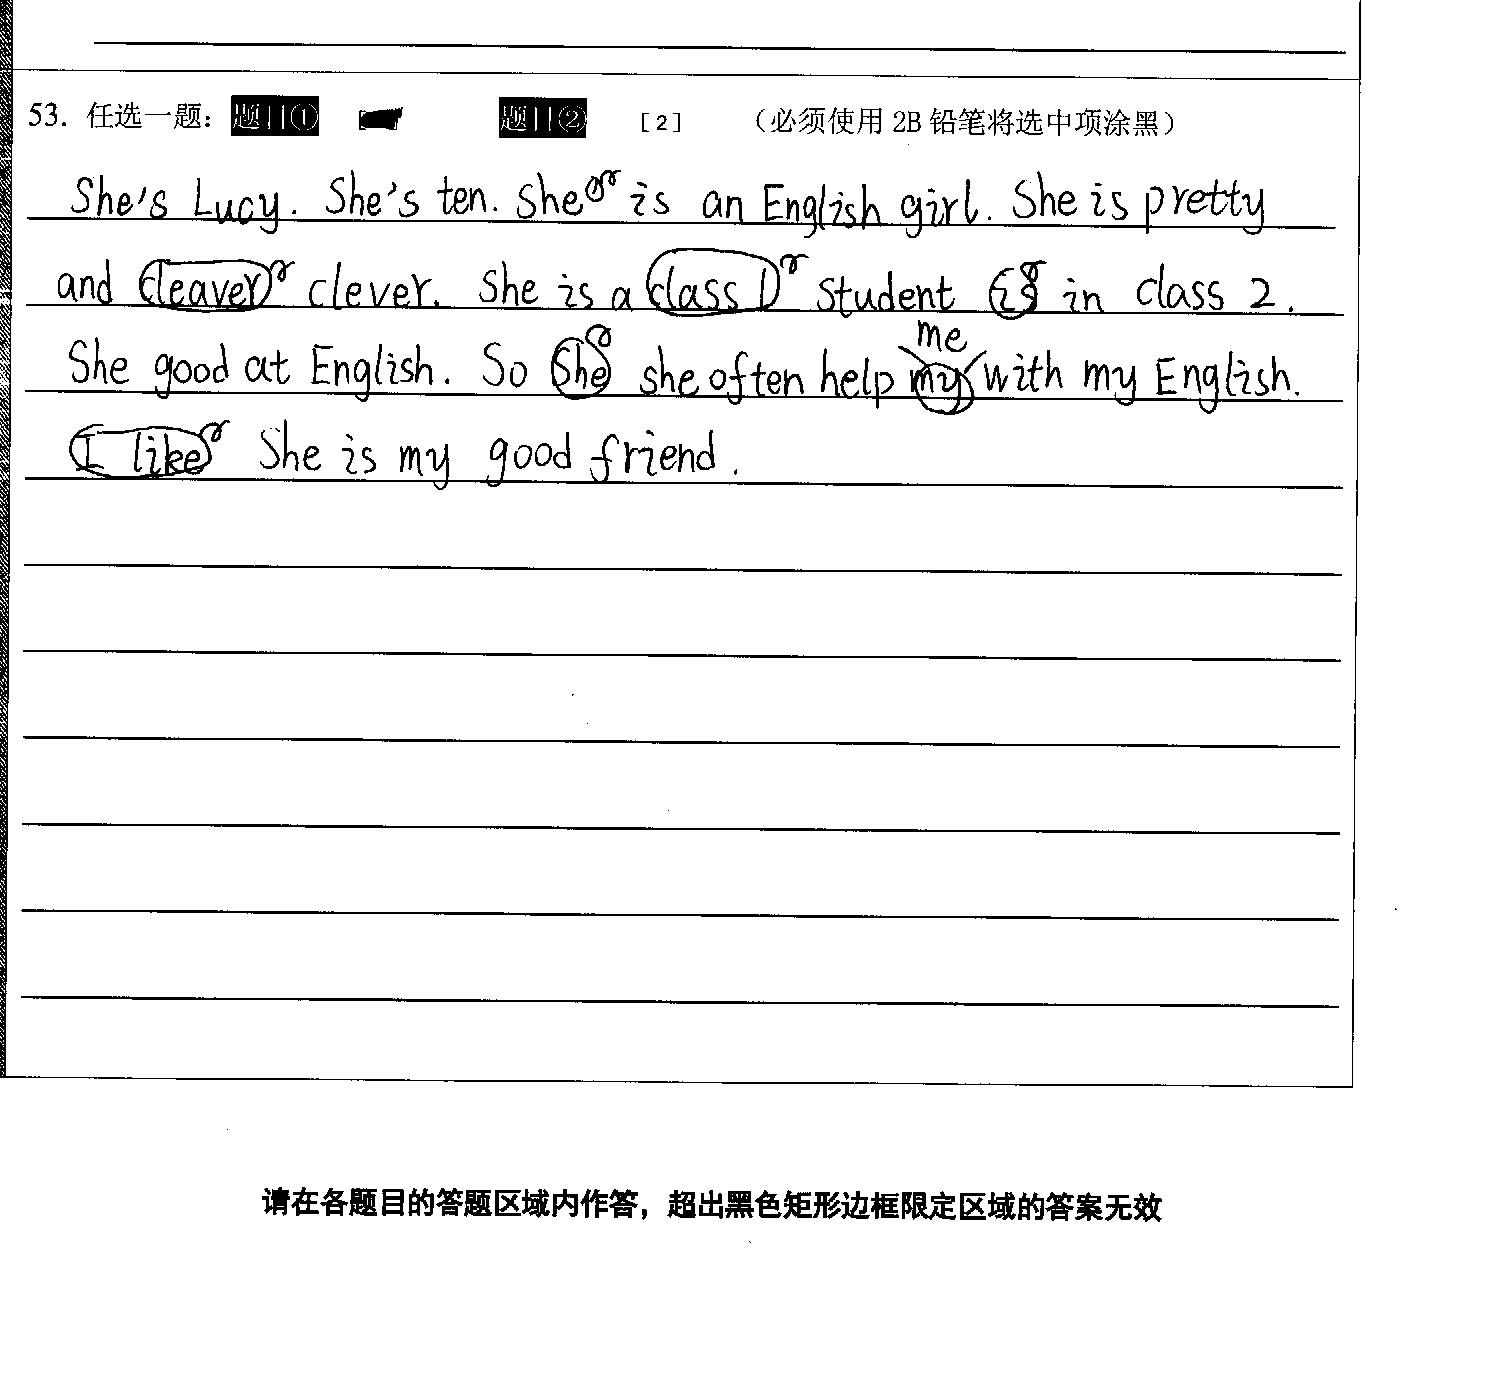 53. 任选一题： 题目① 题目② [2] （必须使用 2B 铅笔将选中项涂黑）
She's Lucy. She's ten. She is an English girl. She is pretty
and cleaver clever. She is a class 1 student is in class 2.
me
She good at English. So she she often help my with my English.
I like She is my good friend.
请在各题目的答题区域内作答，超出黑色矩形边框限定区域的答案无效